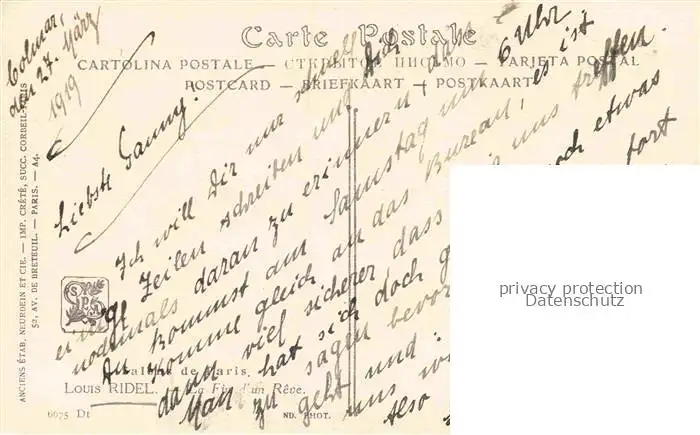 Colmar,
den 27. März
1919
Carte Postale
CARTOLINA POSTALE — ОТКРЫТОЕ ПИСЬМО — TARJETA POSTAL
POSTCARD — BRIEFKAART — POSTKAART
Liebste Fanny!
Ich will Dir nur schnell
einige Zeilen schreiben und Dich
nochmals daran zu erinnern dass
Du kommst am Samstag um 6 Uhr
komme gleich an das Bureau, es ist
dann viel sicherer dass wir uns treffen.
Man hat sich doch noch etwas
zu sagen bevor fort
geht und
uns
Also
privacy protection
Datenschutz
Salon de Paris.
LOUIS RIDEL. — La Fin d'un Rêve.
6675 Dt
ND. PHOT.
ANCIENS ÉTAB. NEURDEIN ET CIE. — IMP. CRÉTÉ, SUCC. CORBEIL-PARIS
52, AV. DE BRETEUIL. — PARIS. — A4.